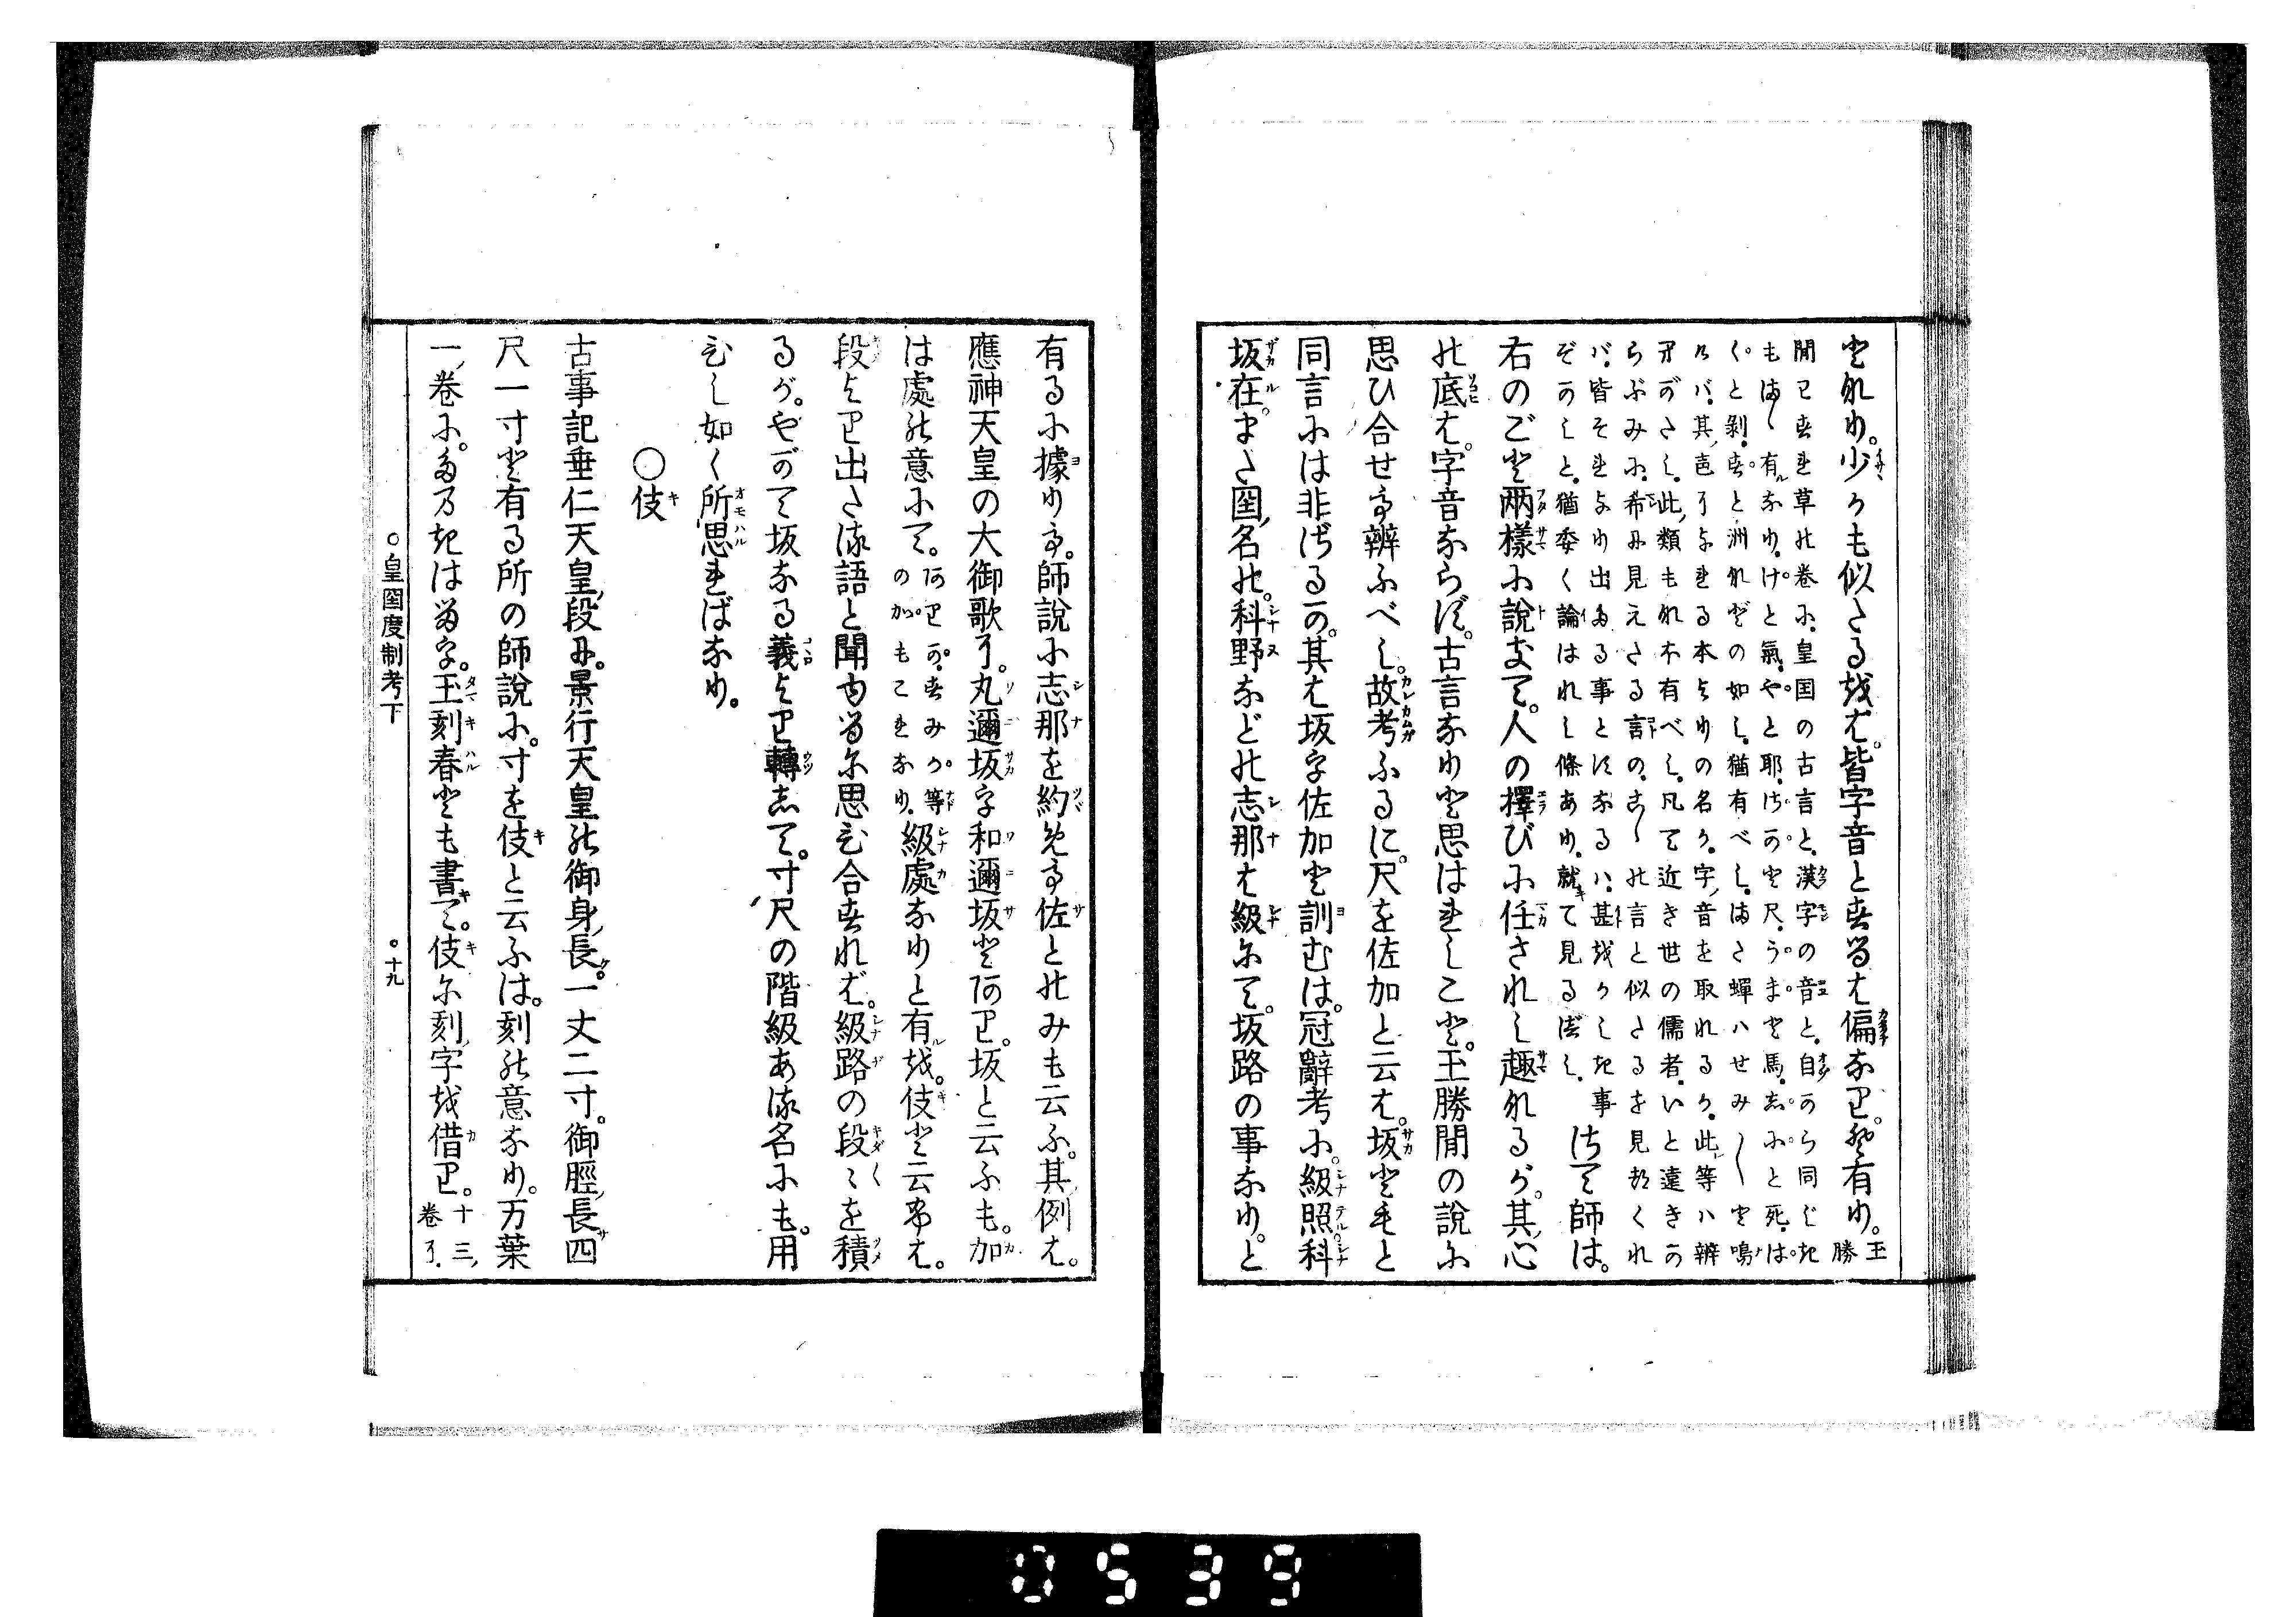 となり。少かも似たるをば。皆字音とするは偏なり。と有り。玉勝
間てすれ草の卷に、皇国の古言と、漢字の音と、自から同じき
もまゝ有なり、けと氣、やと耶、さかと尺、うまと馬、しにと死、は
くと剥、すと洲などの如し、猶有べし、また蟬ハせみ〱と鳴
バ、其声によれる本よりの名か、字音を取れるか、此等ハ辨
がたし、此類もなほ有べし、凡て近き世の儒者、いと遠きか
らぶみに、希に見えたる言の、こゝの言と似たるを見れバ、
皆それより出たる事とするハ、甚をかしき事
ぞかしと、猶委く論はれし條あり、就て見るべし、さて師は。
右のごと兩様に說おて。人の擇びに任されし趣なるが。其心
の底は。字音ならず。古言なりと思はれしこと。玉勝間の說に
思ひ合せて辨ふべし。故考ふるに。尺を佐加と云は。坂と毛と
同言には非ざるか。其は坂字佐加と訓むは。冠辭考に。級照。科
坂在。また国名の。科野などの志那は級にて。坂路の事なり。と
有るに據りて。師說に志那を約めて佐とのみも云ふ。其例は。
應神天皇の大御歌に。丸邇坂字和邇坂と阿り。坂と云ふも。加
は處の意にて。阿りか、すみか、等のかもこれなり、級處なりと有を。伎と云事は。
段より出たる語と聞ゆるに思ひ合すれば。級路の段〻を積
るが。やがて坂なる義より轉して。寸尺の階級ある名にも。用
ひし如く所思ればなり。
〇伎
古事記垂仁天皇段に。景行天皇の御身長。一丈二寸。御脛長四
尺一寸と有る所の師說に。寸を伎と云ふは。刻の意なり。万葉
一卷に。たまきはる字。玉刻春とも書て。伎に刻字を借り。十三卷に、
〇皇国度制考下
〇十九
0539